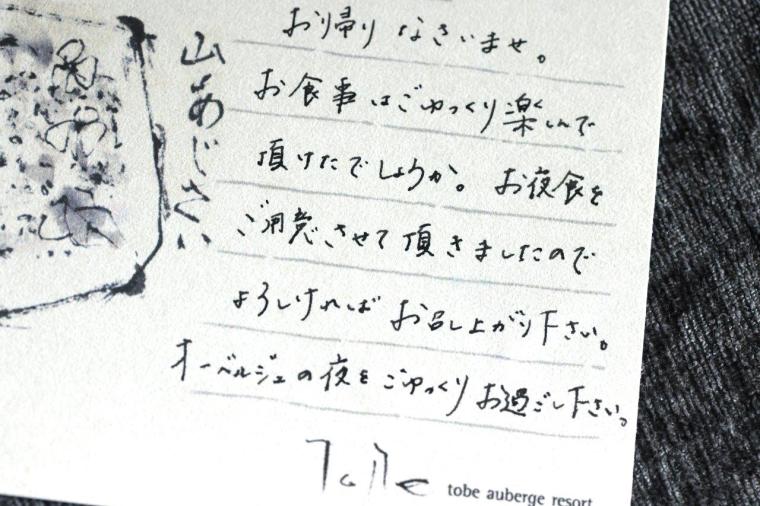 山あじさい
お帰りなさいませ。
お食事はごゆっくり楽しんで
頂けたでしょうか。お夜食を
ご用意させて頂きましたので
よろしければお召し上がり下さい。
オーベルジュの夜をごゆっくりお過ごし下さい。
Tobe
tobe auberge resort